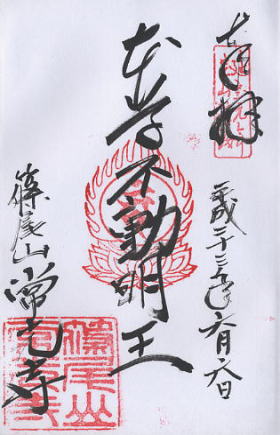 奉拝
平成二十三年六月六日
本尊不動明王
篠尾山
常光寺
篠尾山